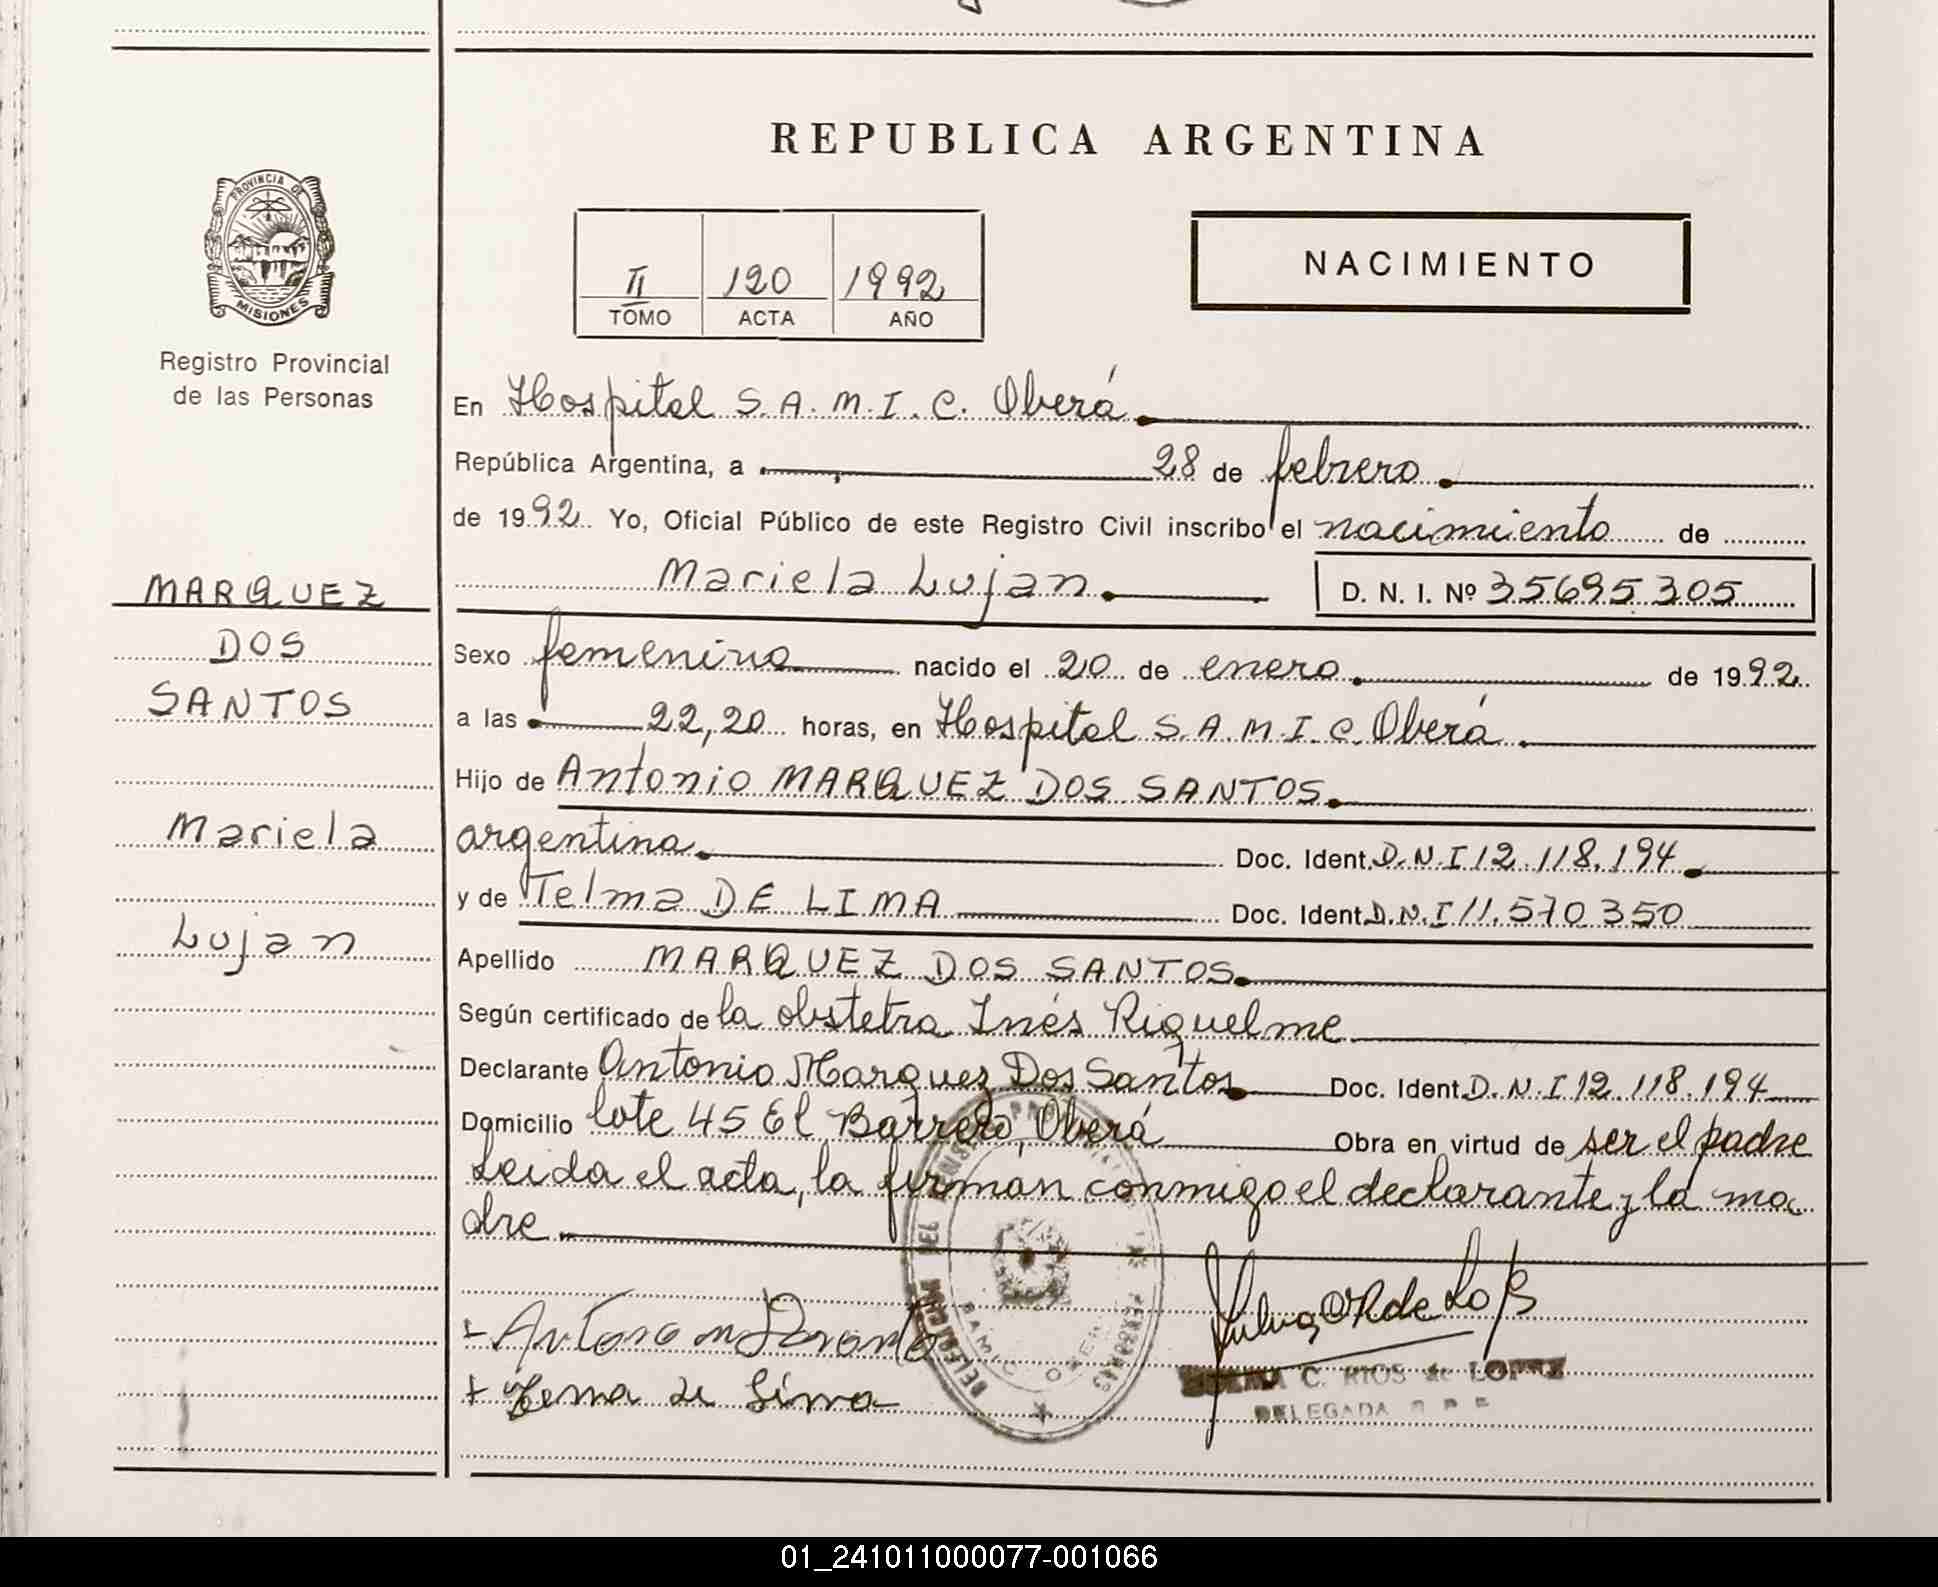 REPUBLICA ARGENTINA
PROVINCIA DE
MISIONES
Registro Provincial
de las Personas
II 120 1992
TOMO ACTA AÑO
NACIMIENTO
En Hospital S.A.M.I.C. Oberá
República Argentina, a 28 de febrero
de 1992 Yo, Oficial Público de este Registro Civil inscribo el nacimiento de
Mariela Lujan D. N. I. Nº 35695305
MARQUEZ
DOS
SANTOS
Mariela
Lujan
Sexo femenino nacido el 20 de enero de 1992
a las 22,20 horas, en Hospital S.A.M.I.C. Oberá
Hijo de Antonio MARQUEZ DOS SANTOS
argentina Doc. Ident. D.N.I 12.118.194
y de Telma DE LIMA Doc. Ident. D.N.I 11.570.350
Apellido MARQUEZ DOS SANTOS
Según certificado de la obstetra Inés Riquelme
Declarante Antonio Marquez Dos Santos Doc. Ident. D.N.I 12.118.194
Domicilio lote 45 El Barrero, Oberá Obra en virtud de ser el padre
Leida el acta, la firman conmigo el declarante y la ma
dre
C. RIOS de LOPEZ
DELEGADA
01_241011000077-001066